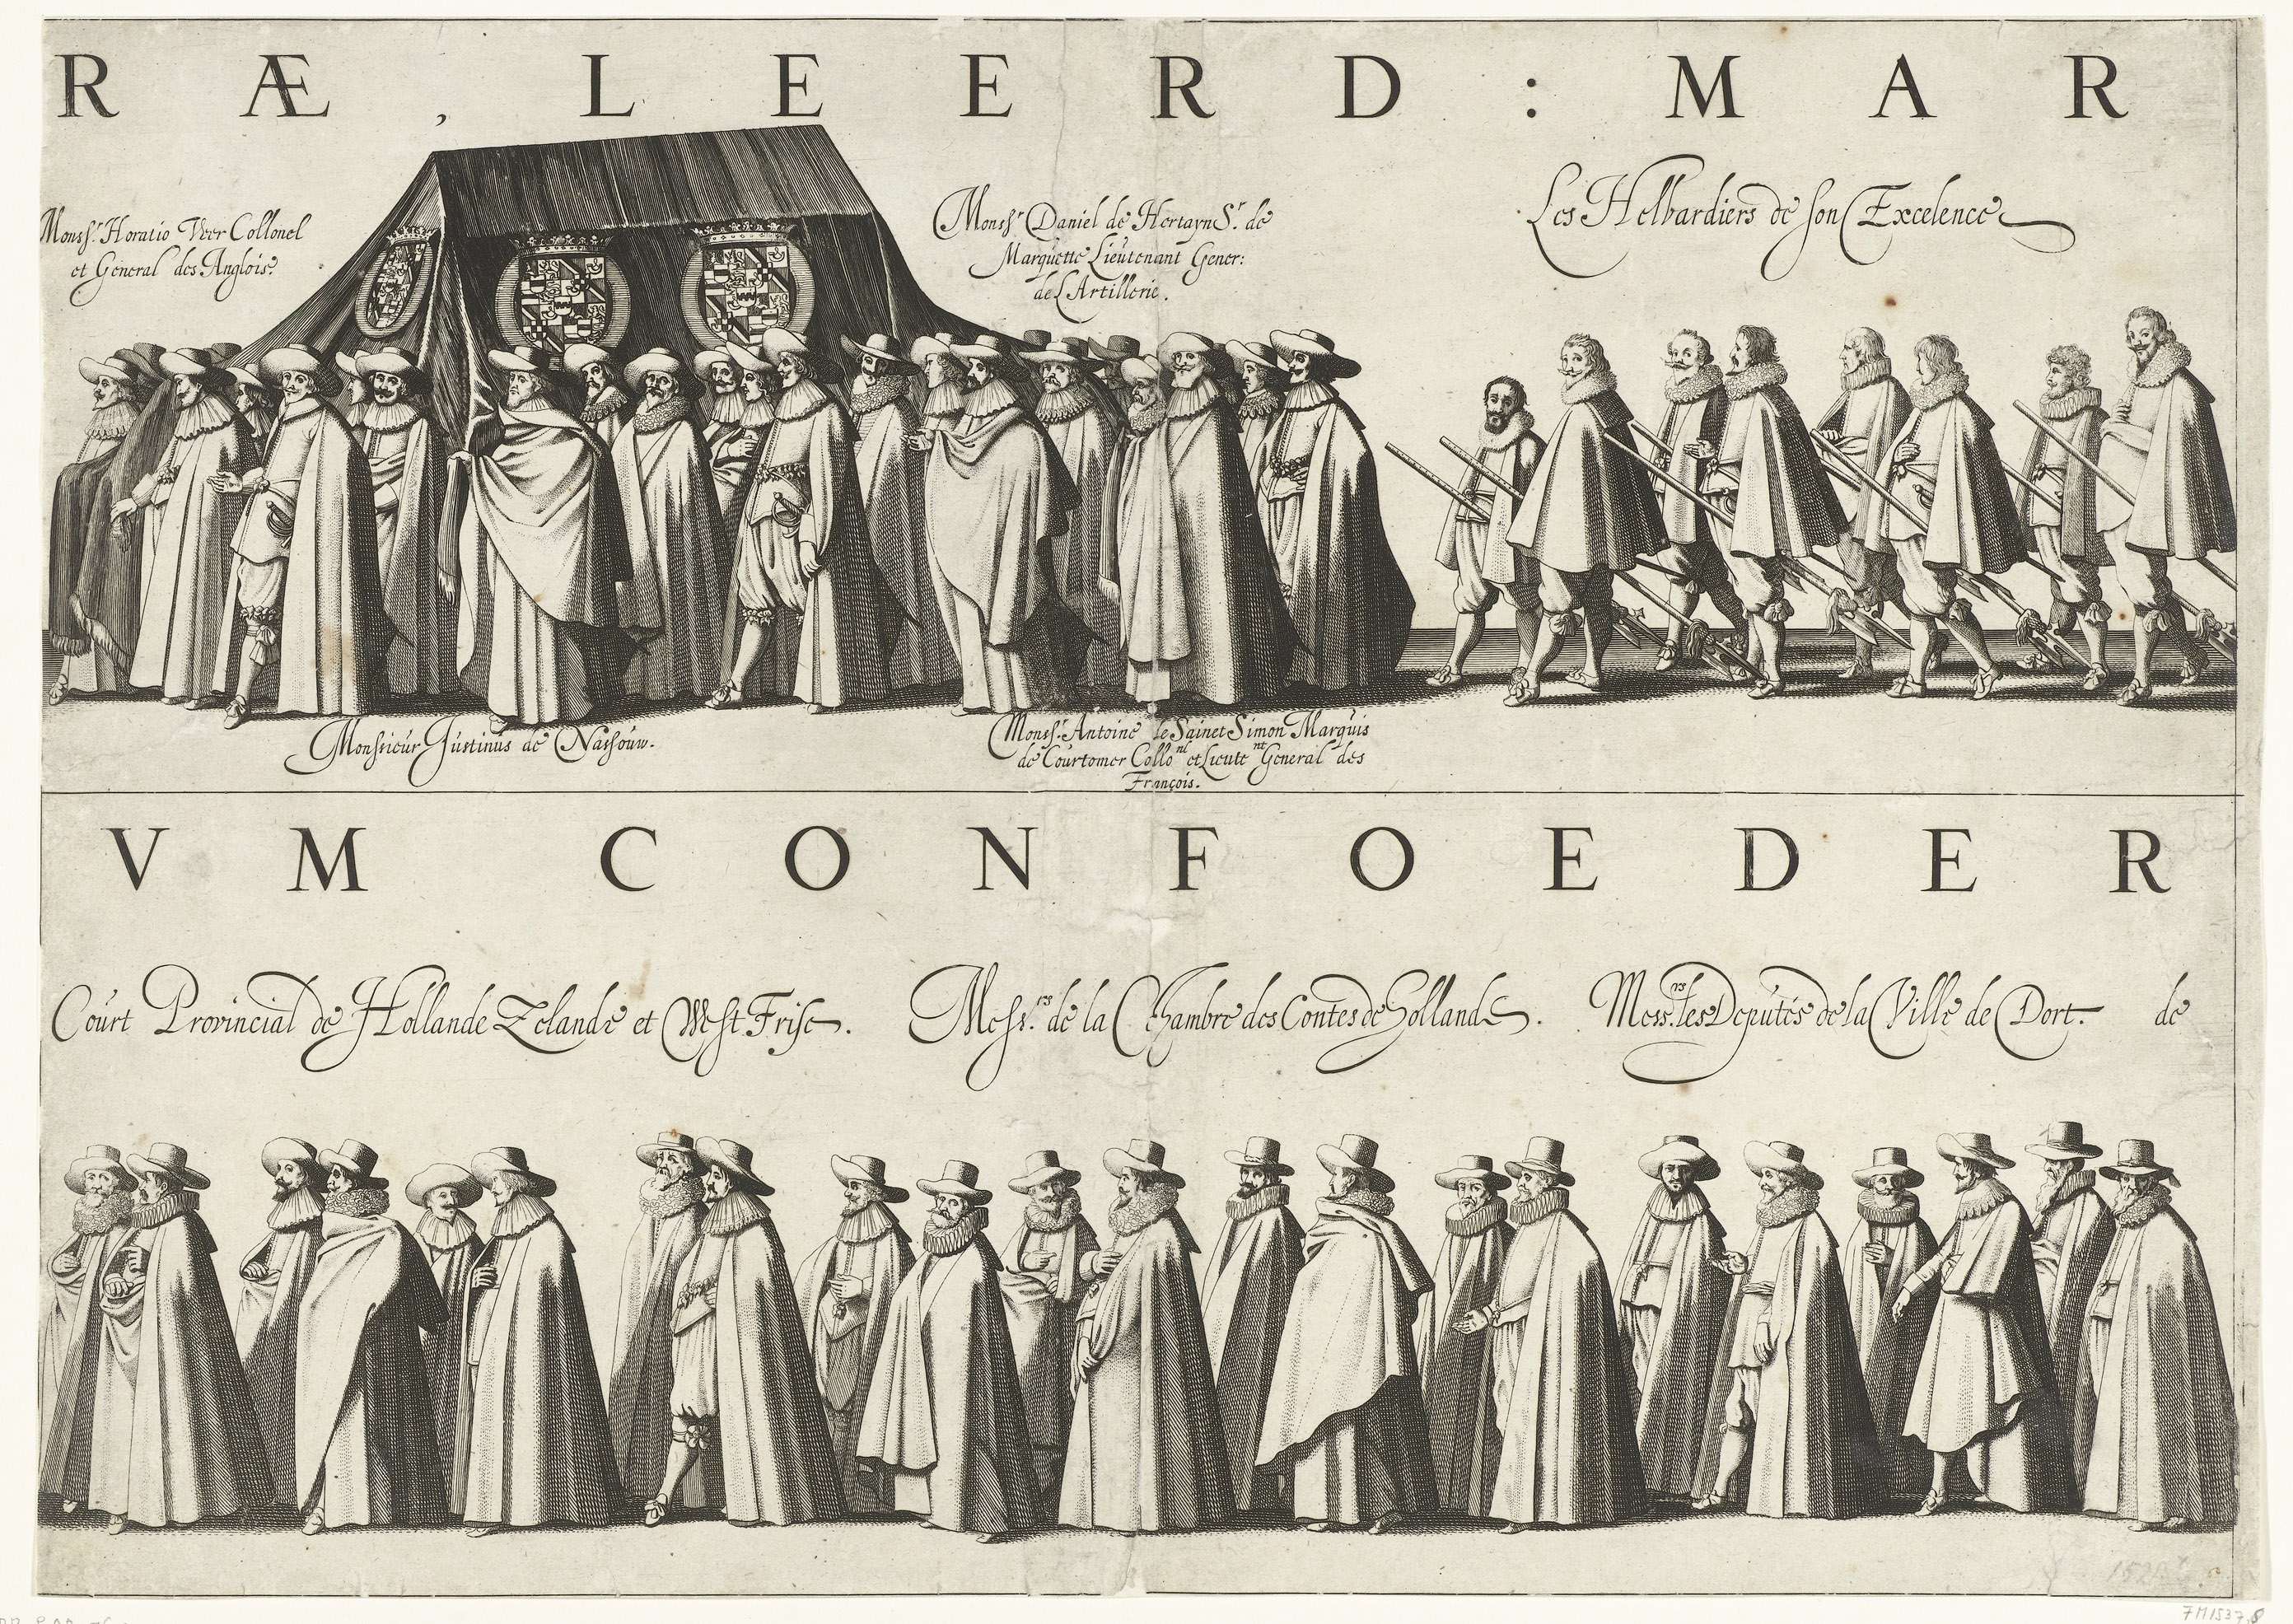 RÆ, LEERD: MAR
Monsr. Horatio Veer Collonel
et General des Anglois.
Monsr Daniel de Hertayn Sr. de
Marquette Lieutenant Gener:
de L'Artillerie.
Les Helbardiers de son Excelence
Monsieur Justinus de Nassouw.
Monsr. Antoine de Sainct Simon Marquis
de Courtomer Collonl et Lieutent General des
François.
VM CONFOEDER
Court Provincial de Hollande Zelande et West Frise.
Messrs. de la Chambre des Contes de Hollande.
Messrs. les Deputés de la Ville de Dort. de
7M1537.8